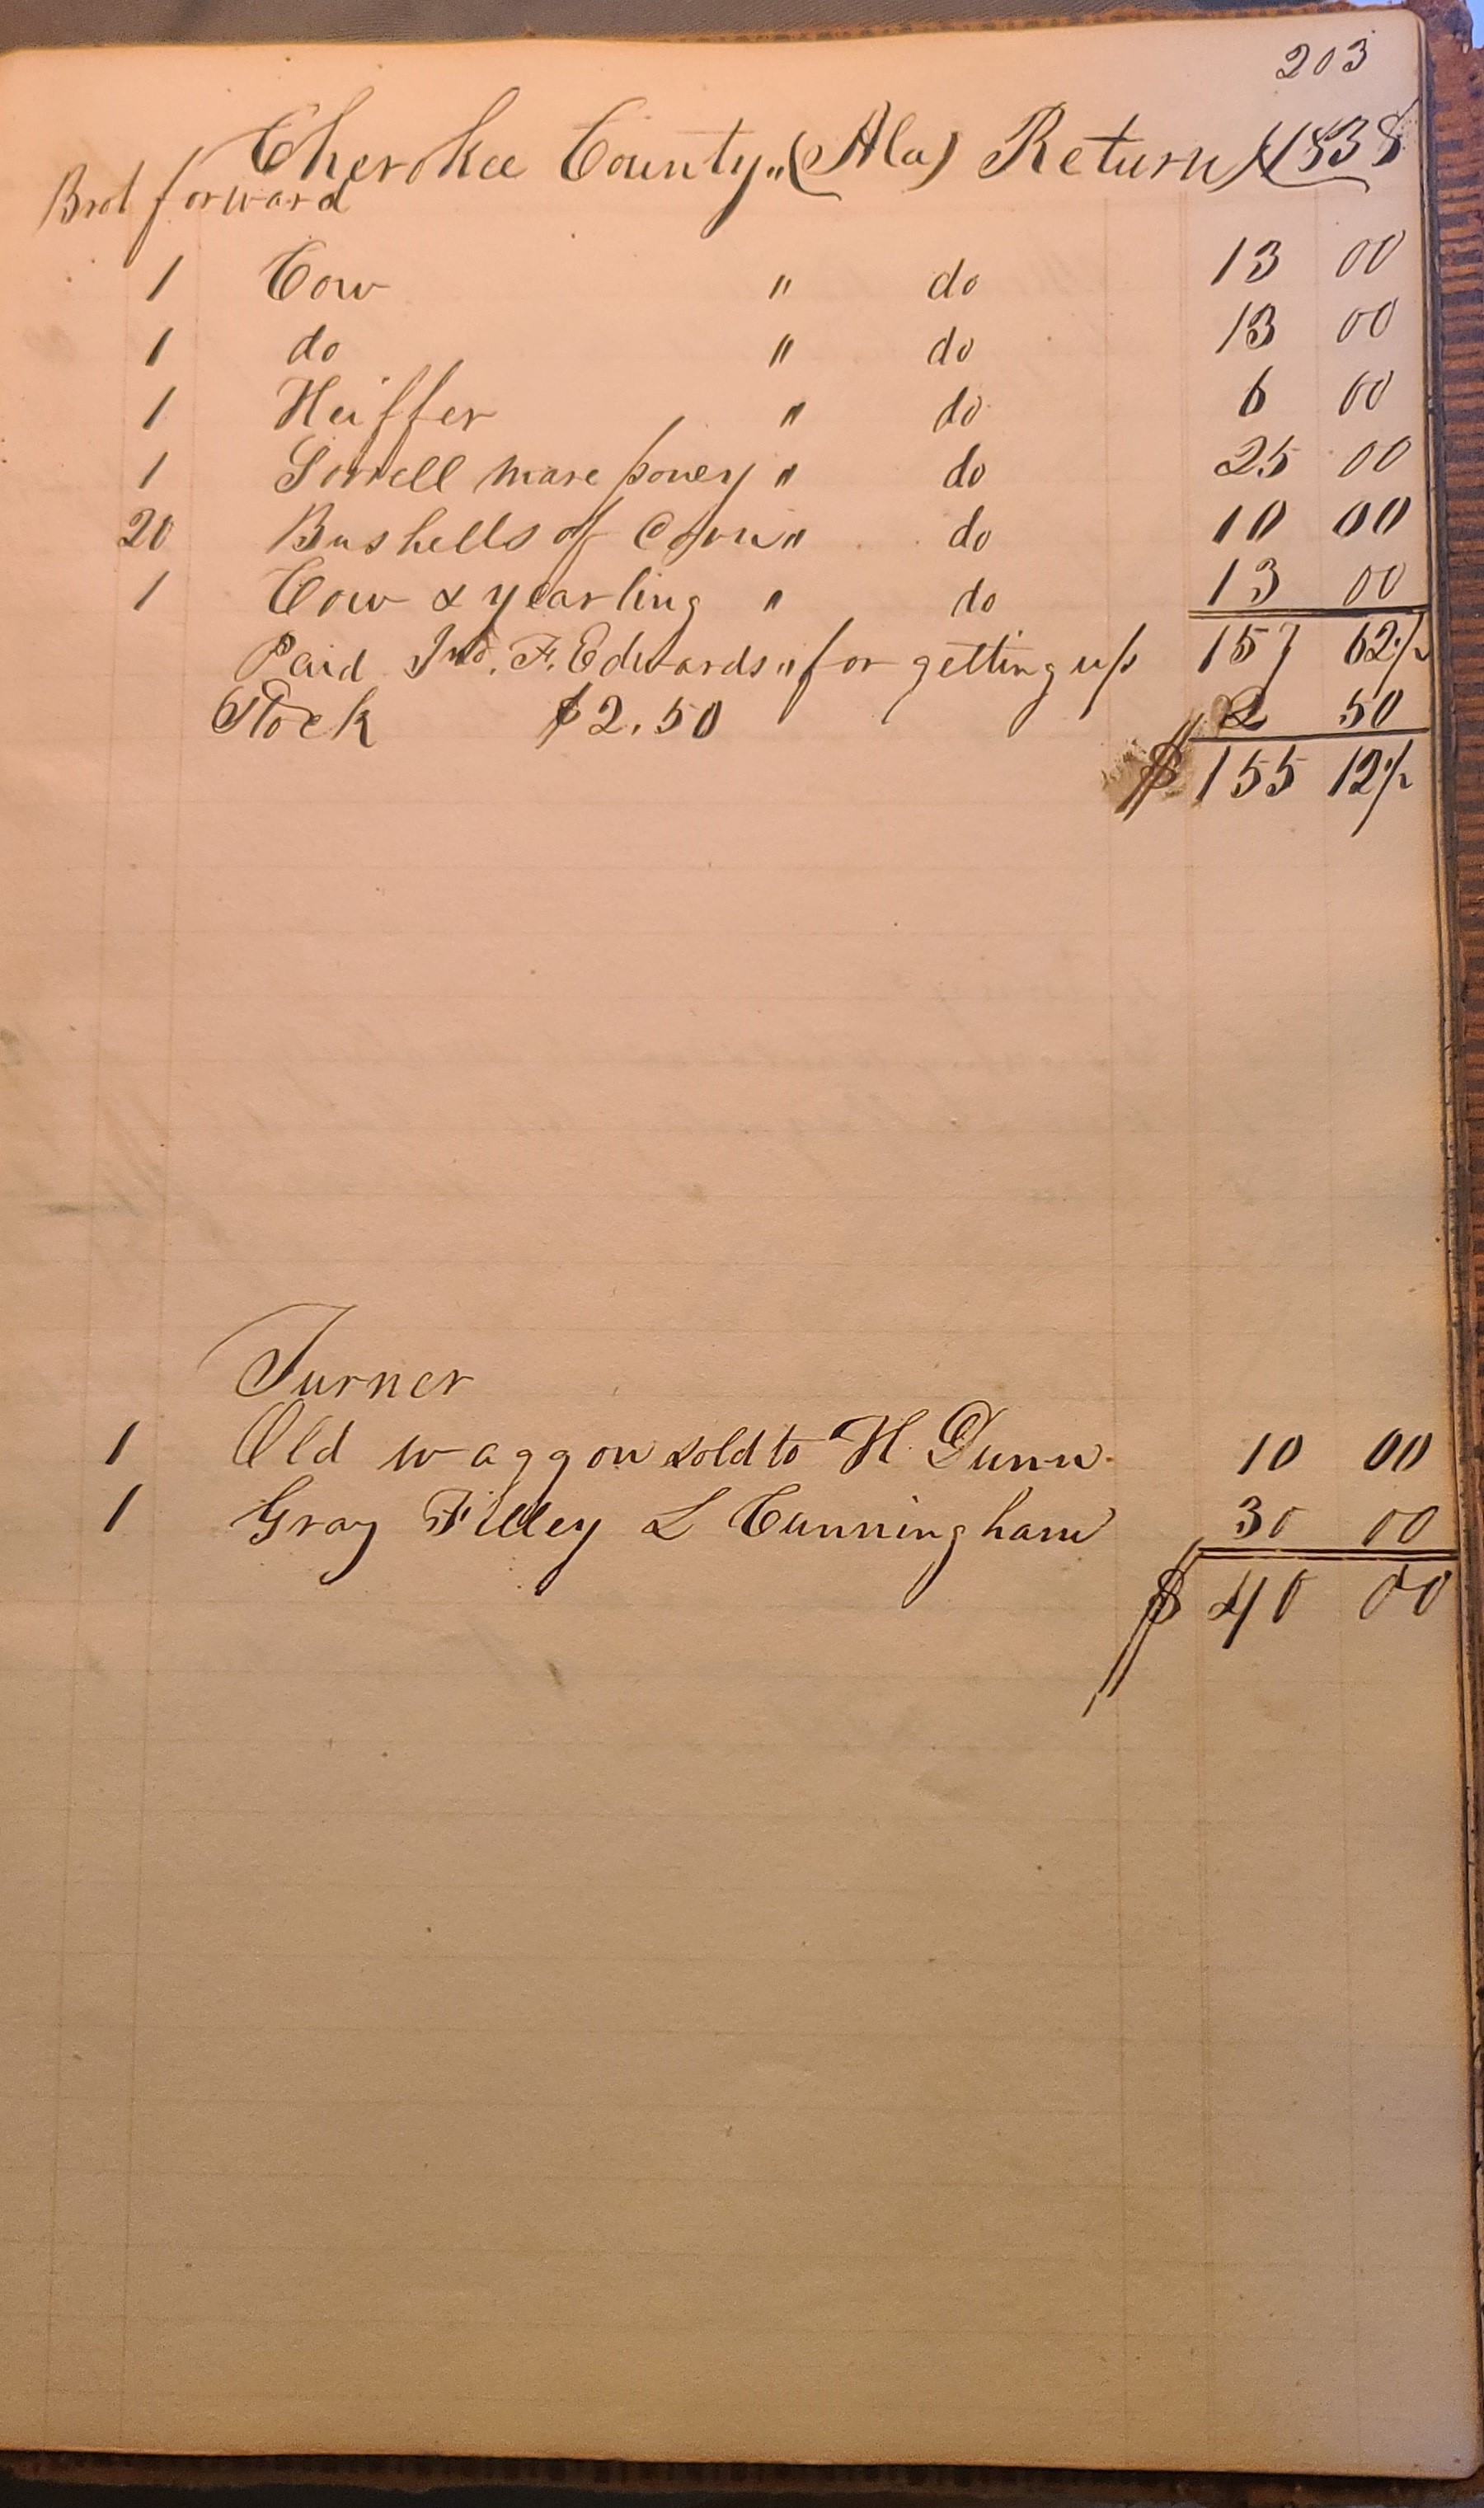 203
Cherokee County,, (Ala) Return 1838
Brot forward
1 Cow " do 13 00
1 do " do 13 00
1 Heiffer " do 6 00
1 Sorrell mare poney " do 25 00
20 Bushells of Corn " do 10 00
1 Cow & yearling " do 13 00
Paid Jno. F. Edwards " for getting up 157 62½
Stock $2.50 2 50
$155 12½
Turner
1 Old waggon sold to H. Dunn. 10 00
1 Gray Filley L Cunningham 30 00
$40 00